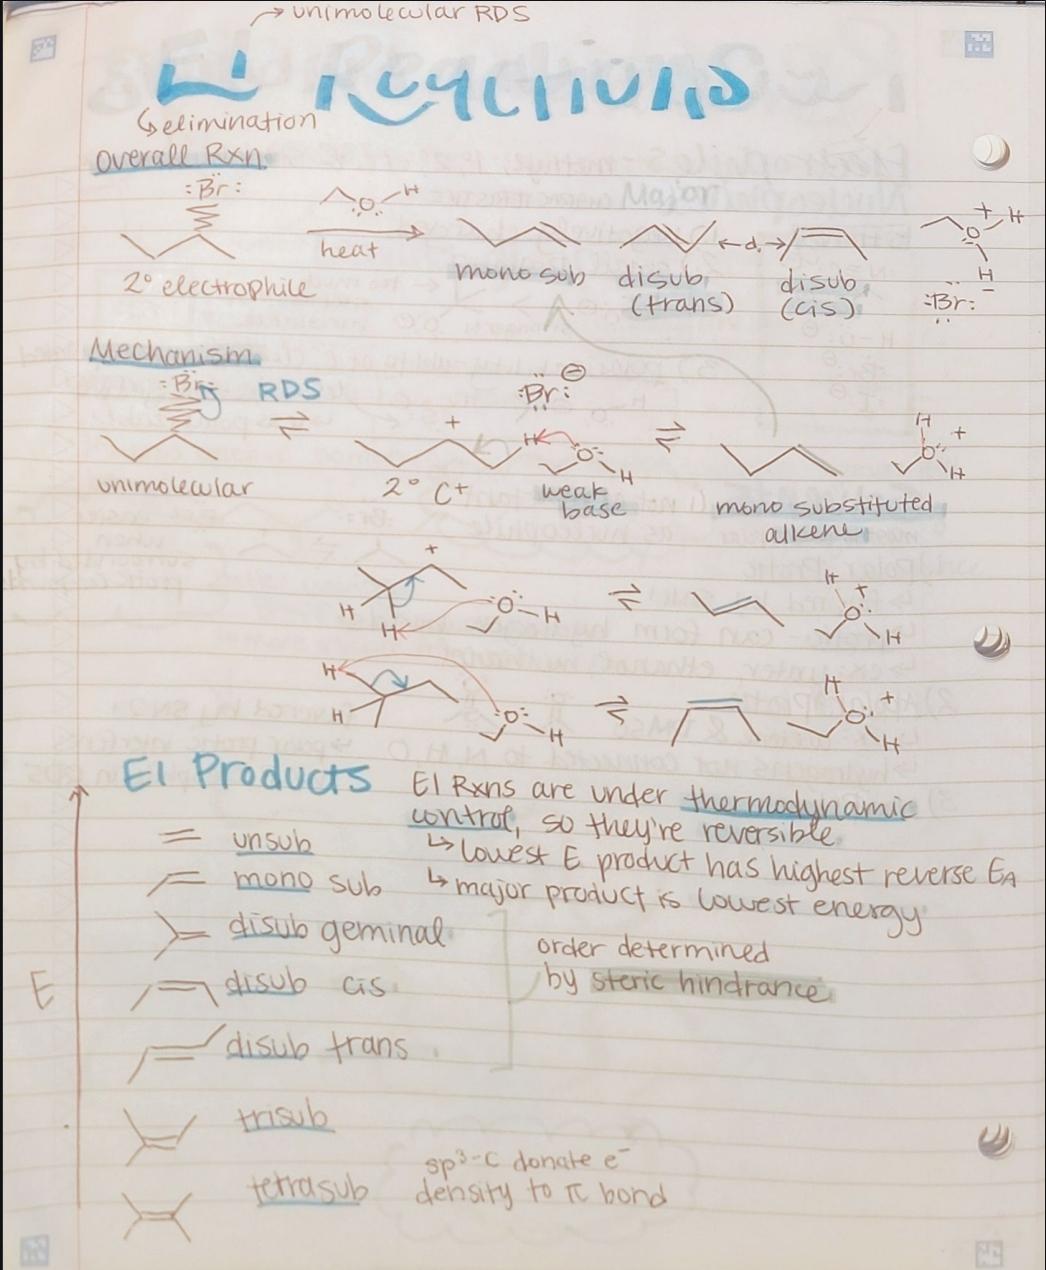 unimolecular RDS
E1 Reactions
elimination
Overall Rxn.
:Br:
O H
heat
Major
+ H
O
H
mono sub disub (trans) ←d.→ disub (cis)
2° electrophile
:Br: −
Mechanism
:Br: RDS ⇌ + :Br: ⊖ H O H ⇌ H O + H
unimolecular 2° C+ weak base mono substituted alkene
+
H H O H ⇌ H O + H
H H O H ⇌ H O + H
E1 Products
E1 Rxns are under thermodynamic
control, so they're reversible.
↳ lowest E product has highest reverse EA
↳ major product is lowest energy
unsub
mono sub
disub geminal
order determined
by steric hindrance
E
disub cis
disub trans
trisub
tetrasub
sp³-C donate e⁻
density to π bond